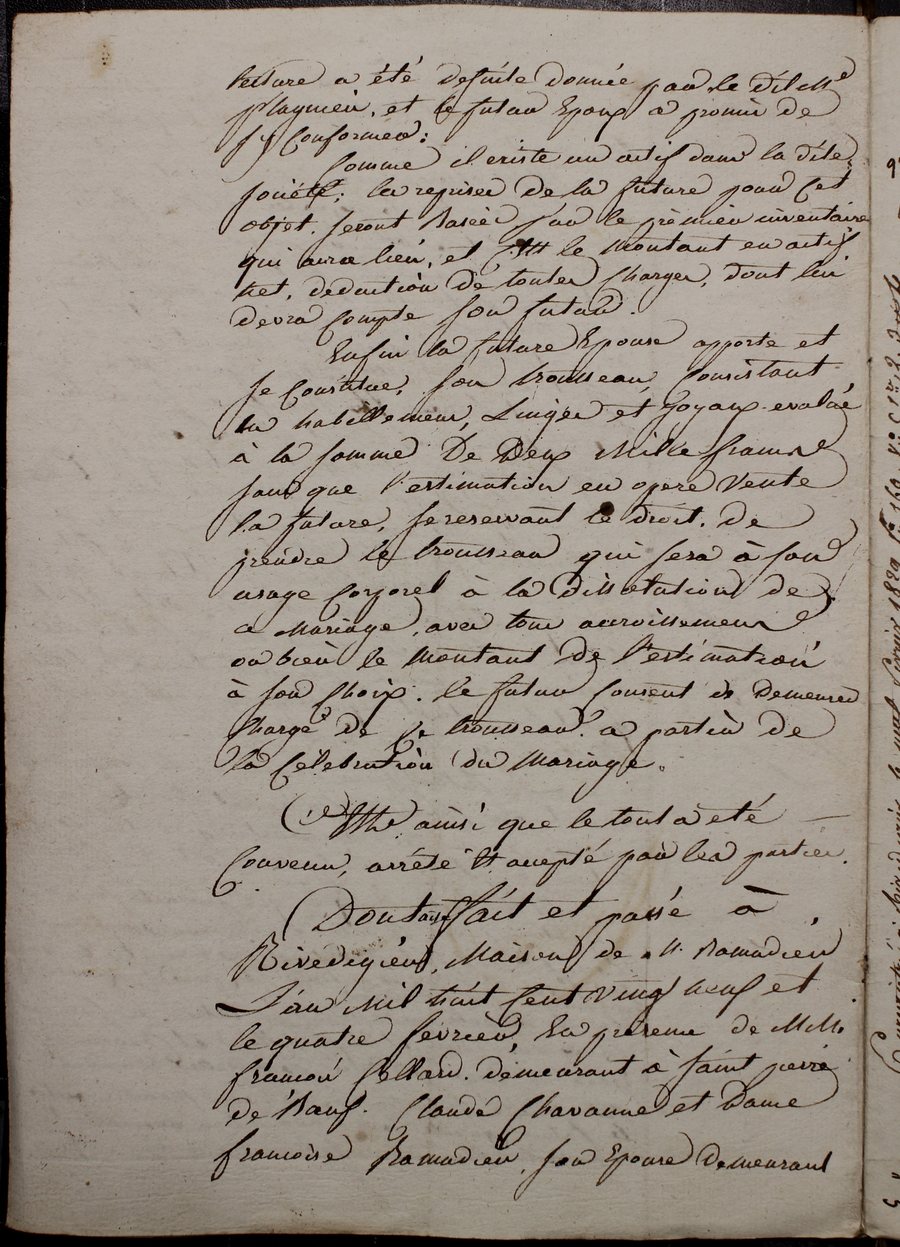 lecture a été desuite donnée par le dit Me
Plagnieu, et le futur Epoux a promis de
s'y Conformer:
Comme il existe un actif dans la dite
société; les reprises de la future pour Cet
objet, seront Basées sur le premier inventaire
qui aura lieu, et le Montant en actif
Net, deduction de toutes Charges, dont lui
devra Compte son futur.
Enfin la future Epouse apporte et
se Constitue, son trousseau, Consistant
en habillemens, Linges et Joyaux evalué
à la somme De Deux Mille francs
sans que l'estimation en opere Vente
la future, se reservant le droit, de
prendre le trousseau qui sera à son
usage Corporel à la Dissolution de
ce Mariage, avec tous accroissemens
ou bien le Montant de l'estimation
à son Choix. le futur Consent de Demeurer
Chargé de Ce trousseau a partir de
la Célébration du Mariage.
ainsi que le tout a été
Convenu, arrêté Et accepté par les parties.
Dont acte fait et passé à
Rivedegier, Maison de Mr Ramadier
L'an Mil huit Cent Vingt neuf et
le quatre fevrier, En presence de MM.
françois Cellard. demeurant à Saint pierre
de Bœuf. Claude Chavanne et Dame
francoise Ramadier, son Epouse demeurant